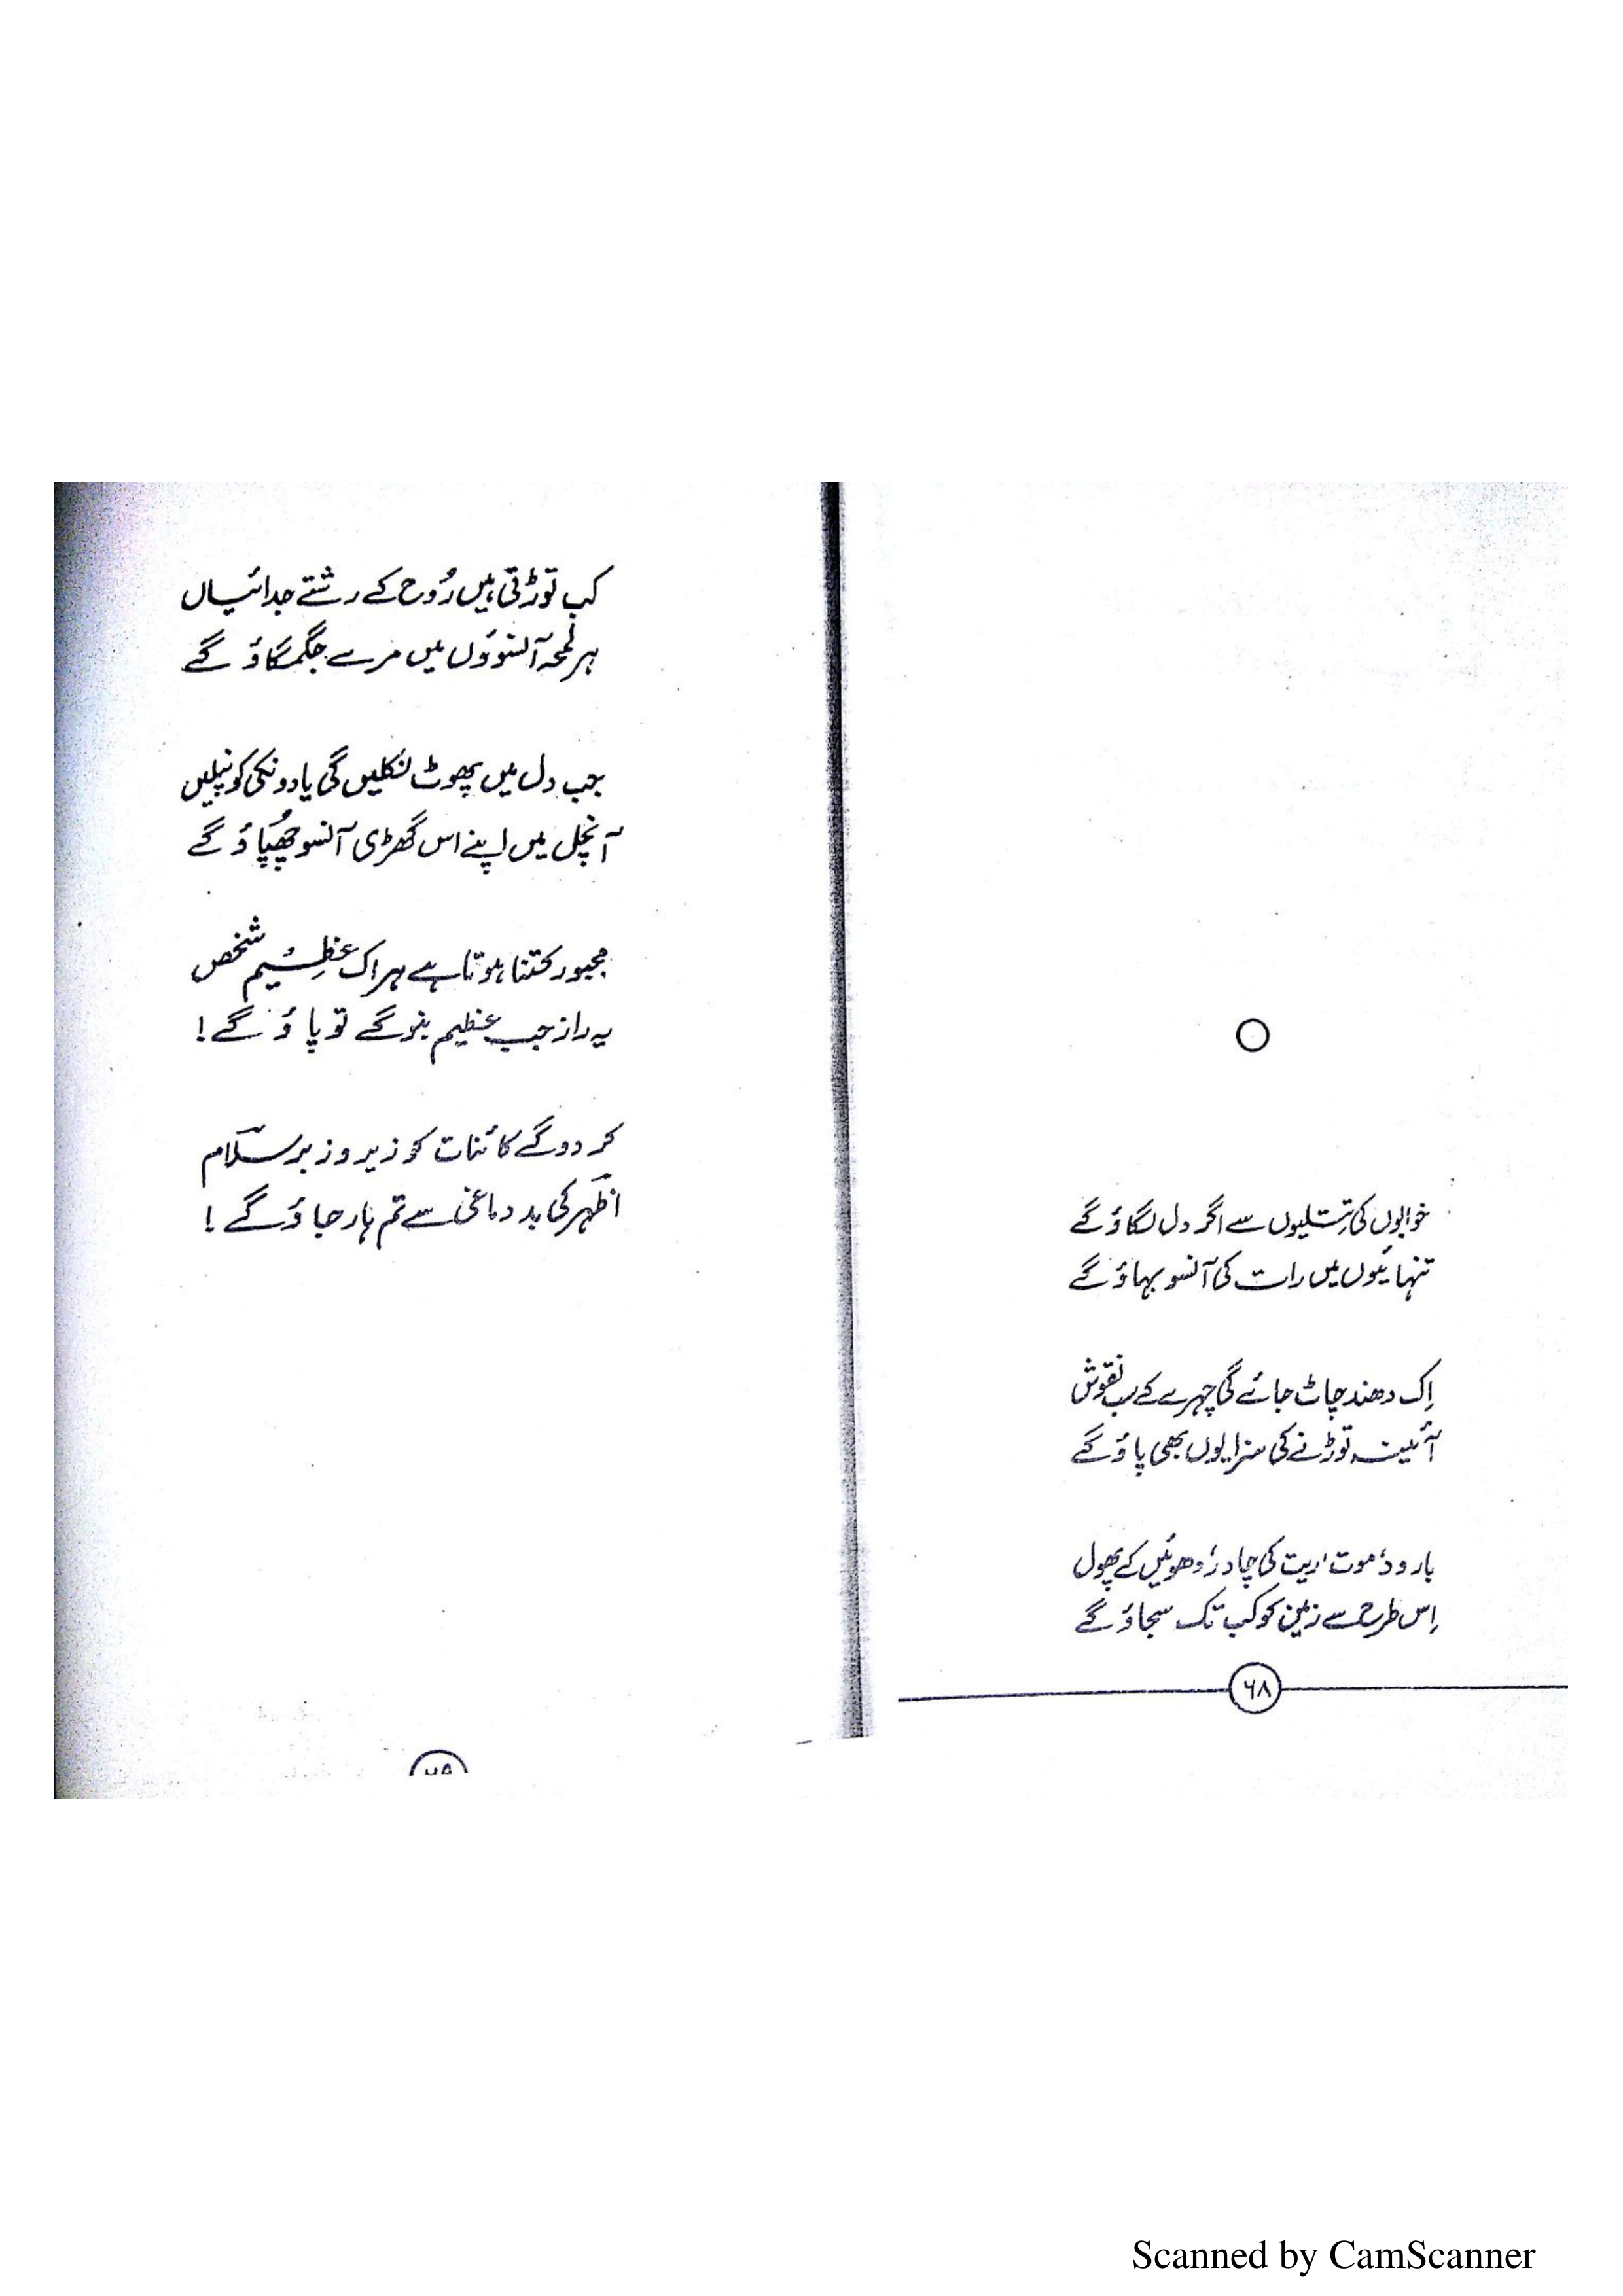 خوابوں کی تِتلیوں سے اگر دل لگاؤ گے
تنہائیوں میں رات کی آنسو بہاؤ گے
اِک دھند چاٹ جائے گی چہرے کے سب نقوش
آئینہ توڑنے کی سزا یوں بھی پاؤ گے
بارود، موت، ریت کی چادر، دھوئیں کے پھول
اِس طرح سے زمین کو کب تک سجاؤ گے
۶۸
کب توڑتی ہیں رُوح کے رشتے جدائیاں
ہر لمحہ آنسوؤں میں مرے جگمگاؤ گے
جب دل میں پھوٹ نکلیں گی یادونکی کونپلیں
آنچل میں اپنے اس گھڑی آنسو چھُپاؤ گے
مجبور کتنا ہوتا ہے ہر اک عظیم شخص
یہ راز جب عظیم بنو گے تو پاؤ گے!
کر دو گے کائنات کو زیر و زبر سلام
اظہر کی بد دماغی سے تم ہار جاؤ گے!
Scanned by CamScanner